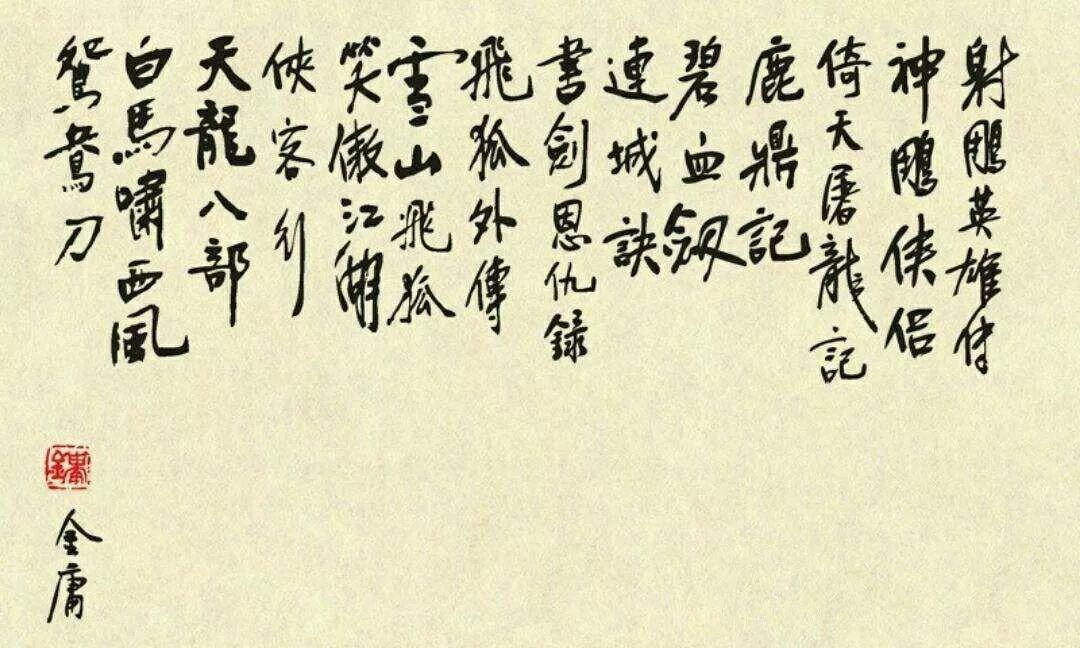 射鵰英雄传
神鵰侠侣
倚天屠龍記
鹿鼎記
碧血劔
連城訣
書劍恩仇録
飛狐外傳
雪山飛狐
笑傲江湖
俠客行
天龍八部
白馬嘯西風
鴛鴦刀
金庸